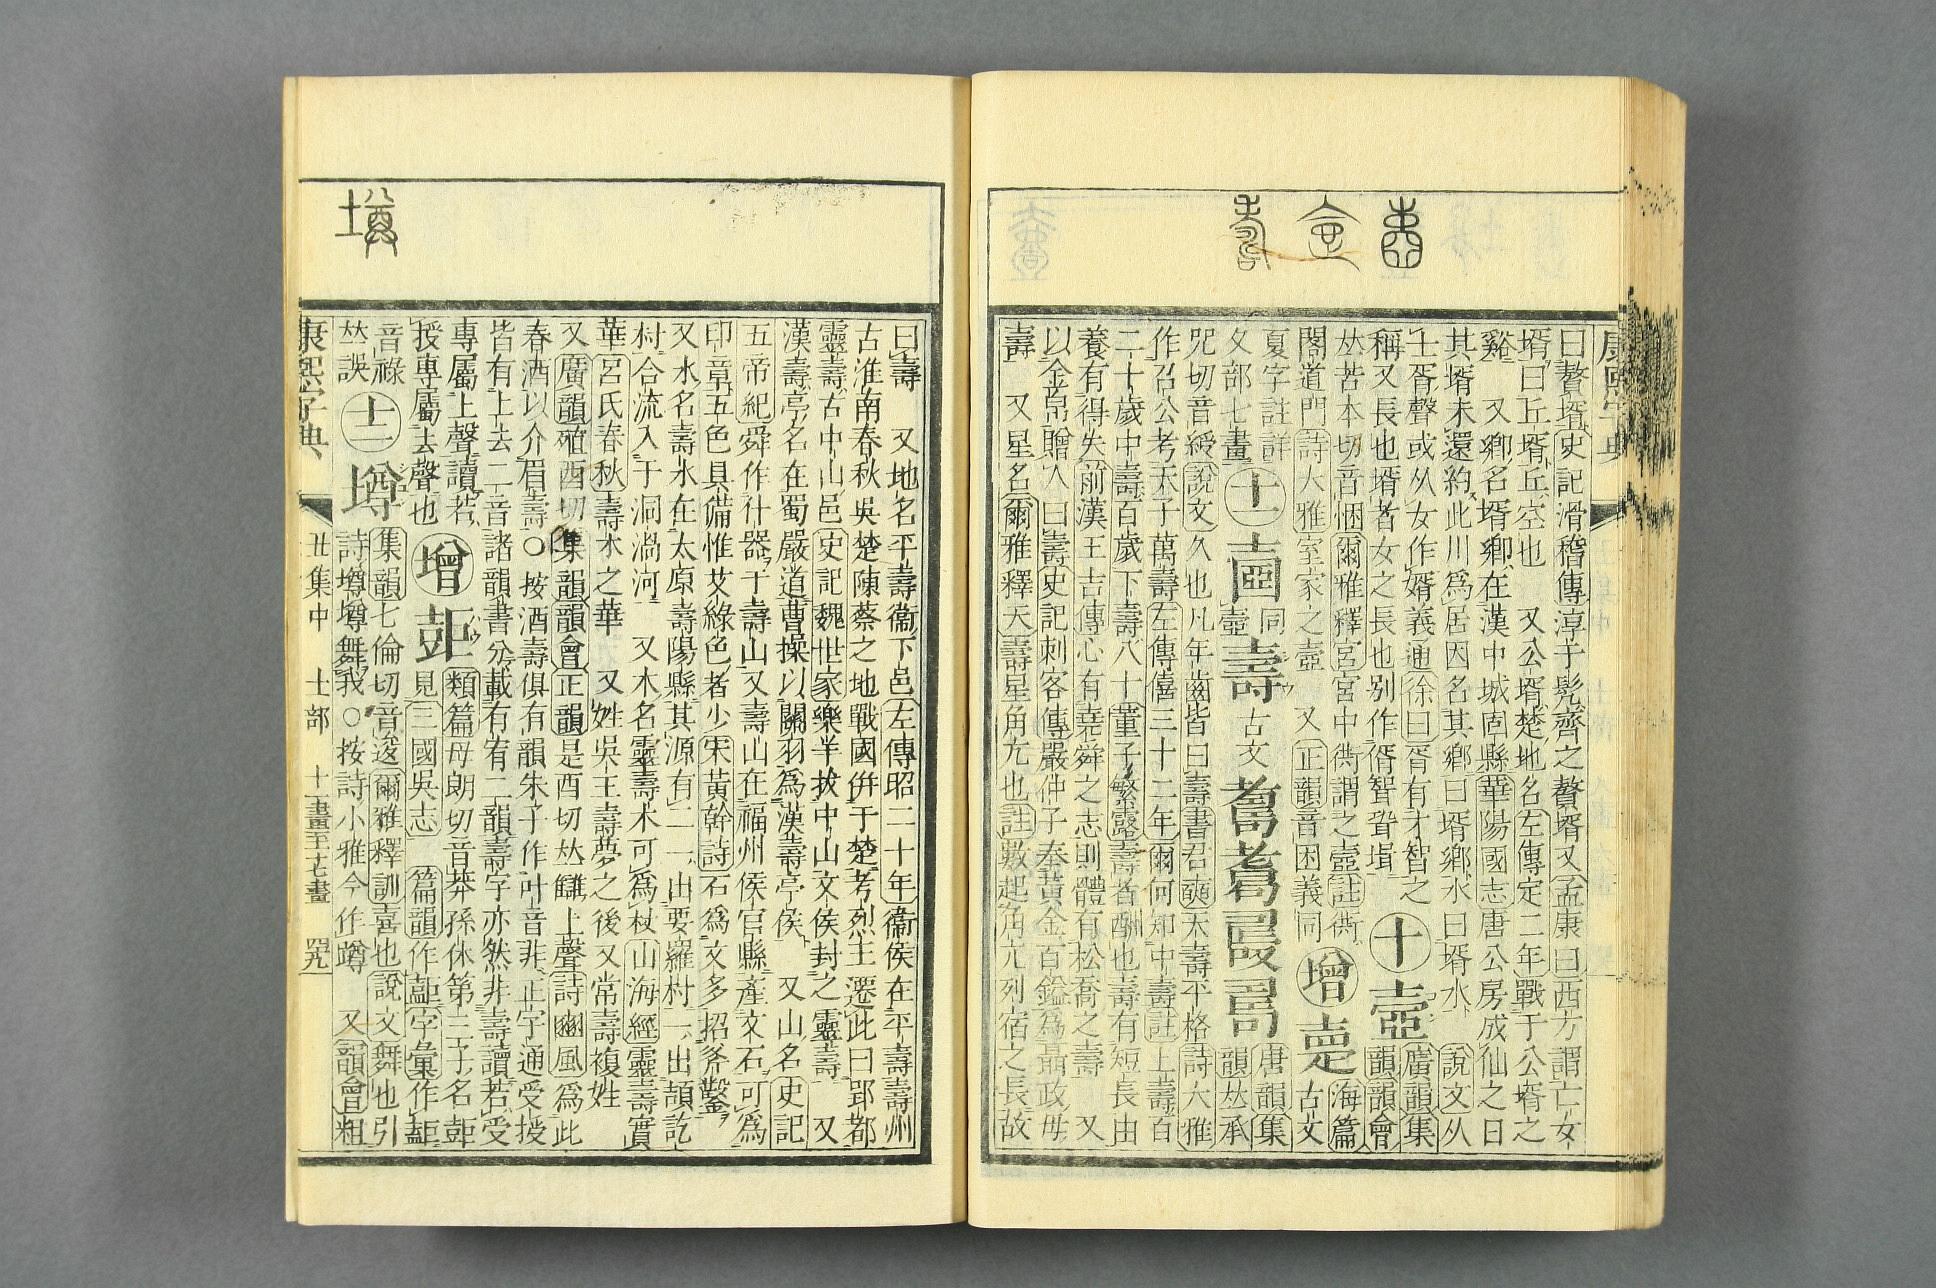 曰贅壻史記滑稽傳淳于髡齊之贅壻又孟康曰西方謂亡女
壻曰丘壻丘空也 又公壻楚地名左傳定二年戰于公壻之
谿 又鄉名壻鄉在漢中城固縣華陽國志唐公房成仙之日
其壻未還約此川爲居因名其鄉曰壻鄉水曰壻水 說文从
士胥聲或从女作婿義通徐曰胥有才智之
稱又長也壻者女之長也别作 十 壼 廣韻集韻韻會
𠀤苦本切音悃爾雅釋宮宮中衖謂之壼註衖 海篇
閣道門詩大雅室家之壼 又正韻音困義同 增 古文
夏字註詳
夊部七畫 十一 同壼 壽 古文 唐韻集韻𠀤承
咒切音綬說文久也凡年齒皆曰壽書君奭天壽平格詩大雅
作召公考天子萬壽左傳僖三十二年爾何知中壽註上壽百
二十歲中壽百歲下壽八十董子繁露壽者酬也壽有短長由
養有得失前漢王吉傳心有堯舜之志則體有松喬之壽 又
以金帛贈人曰壽史記刺客傳嚴仲子奉黃金百鎰爲聶政母
壽 又星名爾雅釋天壽星角亢也註數起角亢列宿之長故
曰壽 又地名平壽衞下邑左傳昭二十年衞侯在平壽壽州
古淮南春秋吳楚陳蔡之地戰國倂于楚考烈王遷此曰郢都
靈壽古中山邑史記魏世家樂羊拔中山文侯封之靈壽 又
漢壽亭名在蜀嚴道曹操以關羽爲漢壽亭侯 又山名史記
五帝紀舜作什器于壽山又壽山在福州侯官縣產文石可爲
印章五色具備惟艾綠色者少宋黃幹詩石爲文多招斧鑿
又水名壽水在太原壽陽縣其源有二一出要羅村一出頡訖
村合流入于洞渦河 又木名靈壽木可爲杖山海經靈壽實
華呂氏春秋壽木之華 又姓吳王壽夢之後又常壽複姓
又廣韻殖酉切集韻韻會正韻是酉切𠀤讎上聲詩豳風爲此
春酒以介眉壽○按酒壽俱有韻朱子作叶音非正字通受授
皆有上去二音諸韻書分載有宥二韻壽字亦然非壽讀若受
專屬上聲讀若 類篇母朗切音莽孫休第三子名
授專屬去聲也 增 見三國吳志 篇韻作 字彙作
音祿 集韻七倫切音逡爾雅釋訓喜也說文舞也引
𠀤誤 十二 墫 詩墫墫舞我○按詩小雅今作蹲 又韻會粗
康熙字典 丑集中 士部 十一畫至七畫